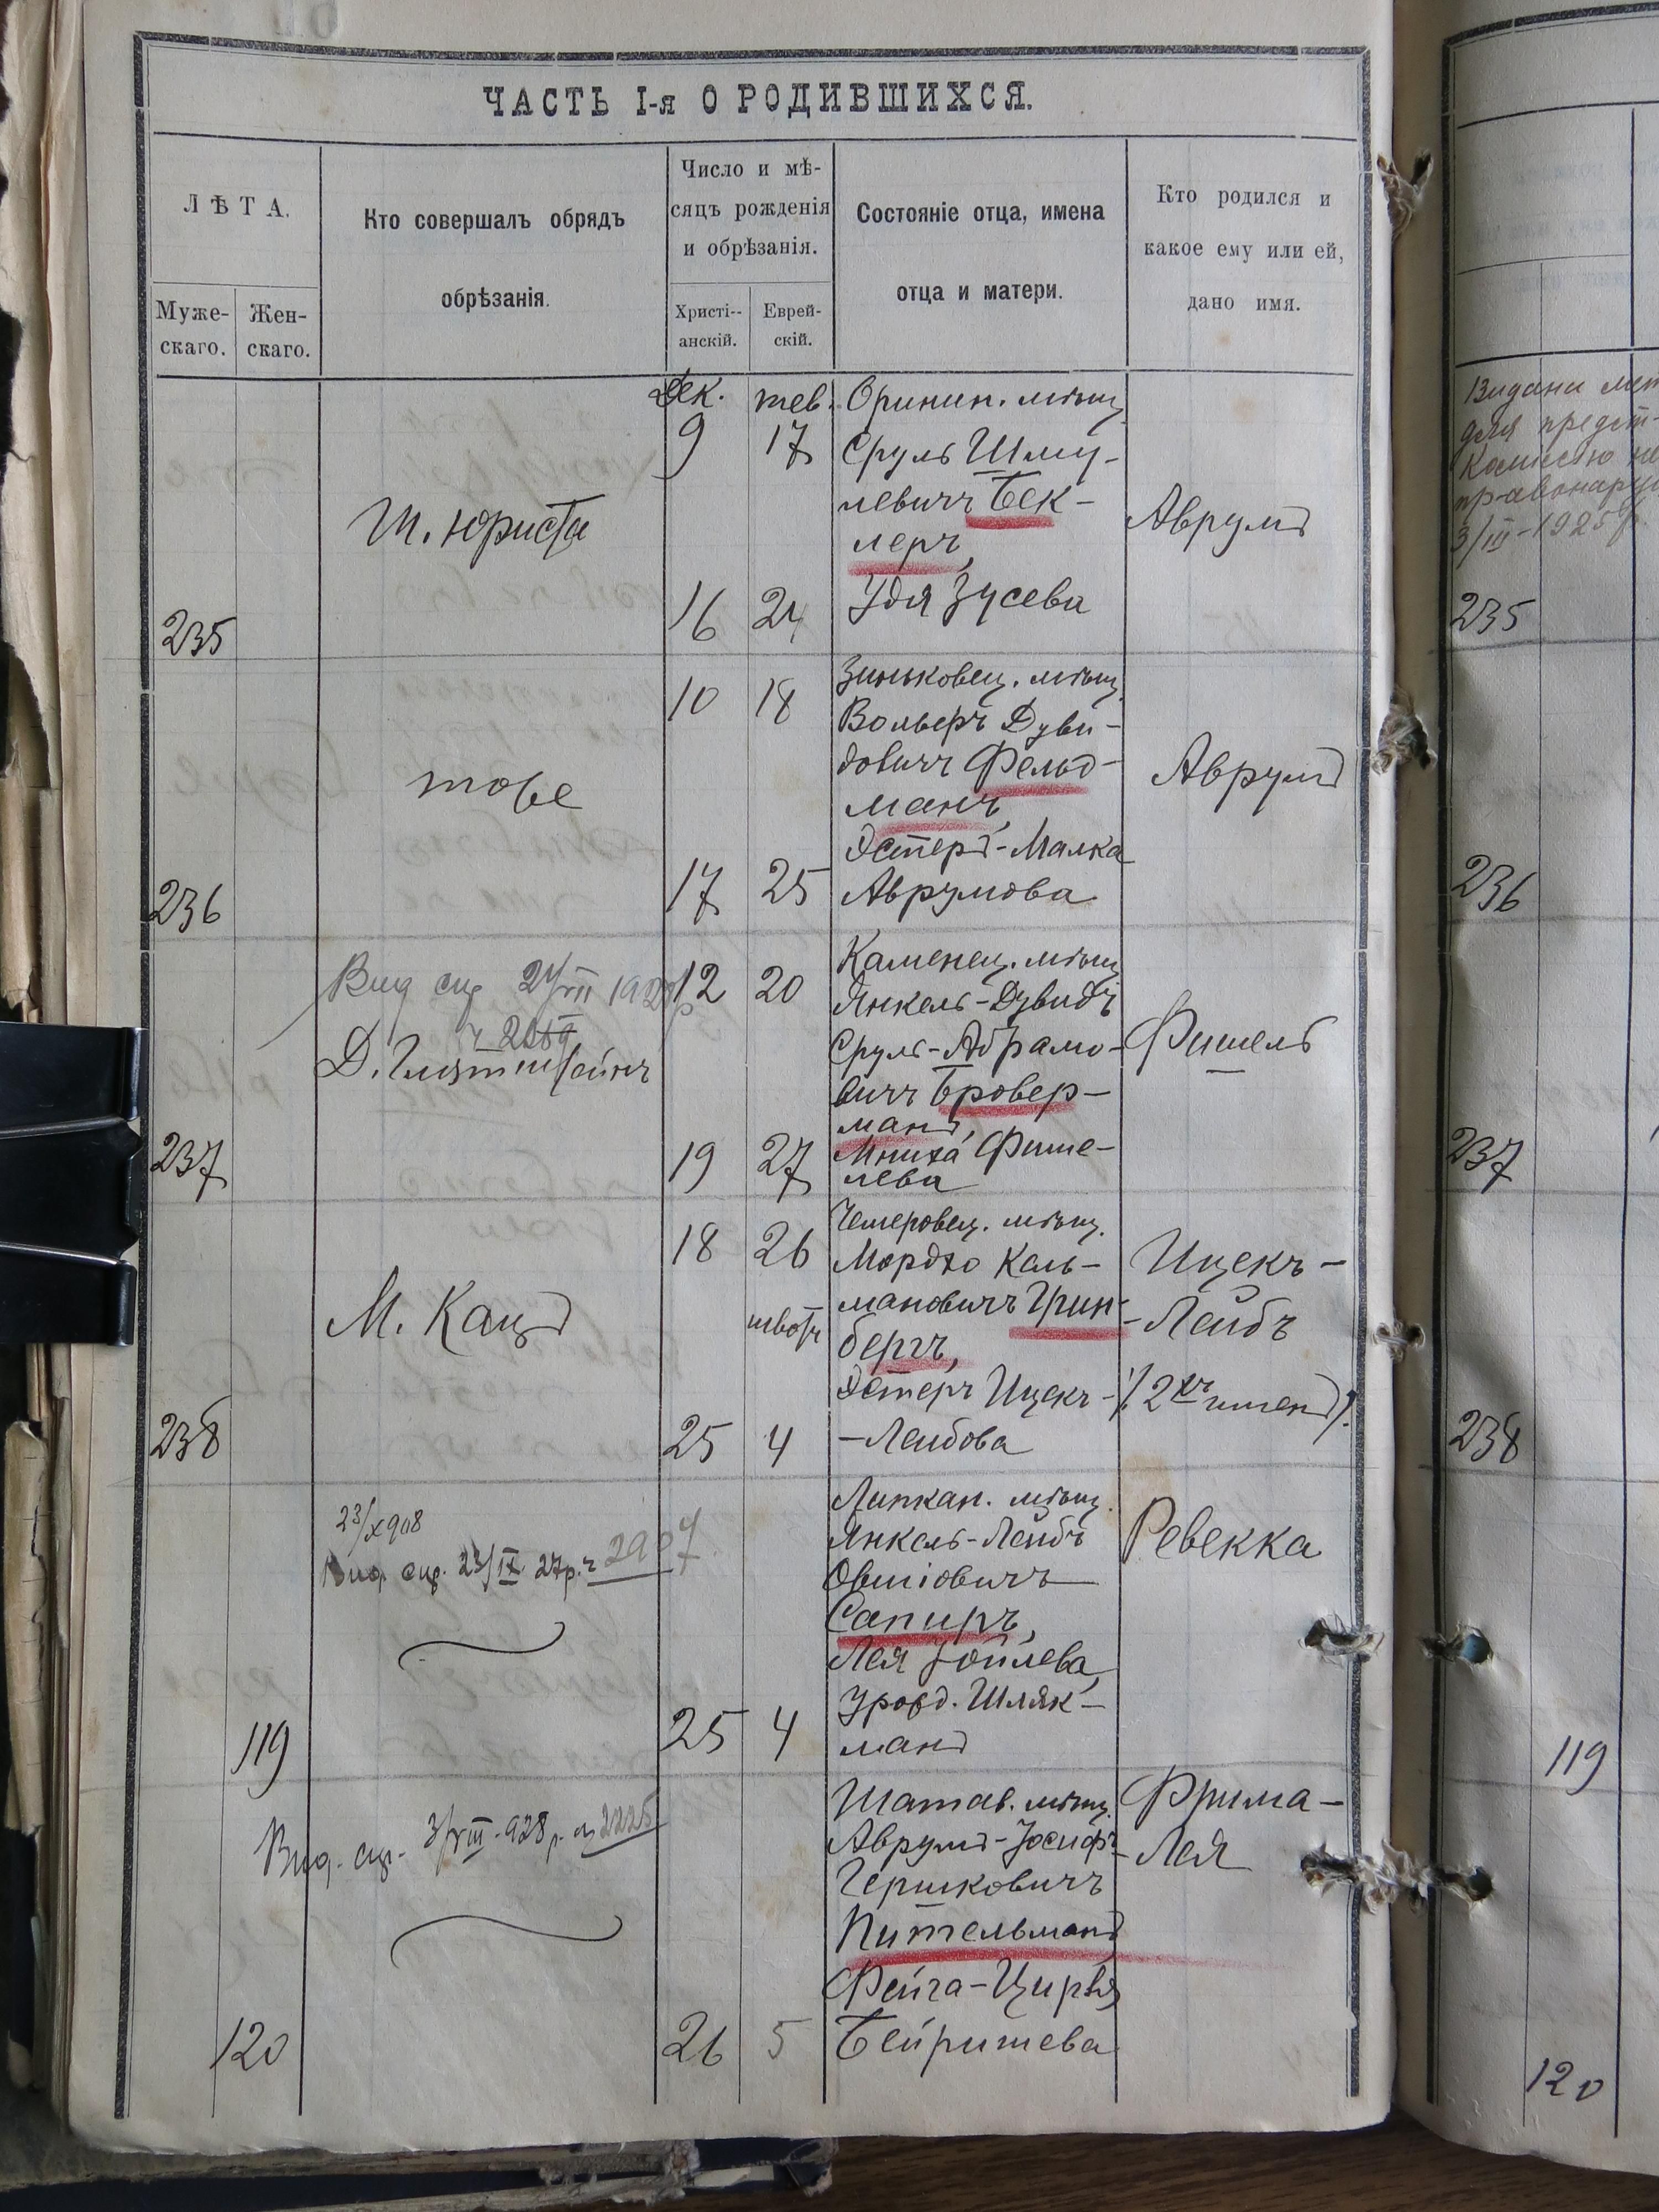 ЧАСТЬ I-я О РОДИВШИХСЯ.
ЛѢТА.
Муже-
скаго.
Жен-
скаго.
Кто совершалъ обрядъ
обрѣзанія.
Число и мѣ-
сяцъ рожденія
и обрѣзанія.
Христі--
анскій.
Еврей-
скій.
Состояніе отца, имена
отца и матери.
Кто родился и
какое ему или ей,
дано имя.
235
Ш. Юриста
Дек.
9
16
тев.
17
24
Оринин. мѣщ.
Сруль Шму-
левичъ Бек-
леръ,
Удя Зусева
Аврумъ
236
тоже
10
17
18
25
Зиньковец. мѣщ.
Вольфъ Дуви-
довичъ Фельд-
манъ,
Эстеръ-Малка
Аврумова
Аврумъ
237
Д.
12
19
20
27
Каменец. мѣщ.
Янкель-Дувидъ
Сруль-Абрамо-
вичъ Бровер-
манъ,
Фише-
лева
Фишель
238
М. Кацъ
18
25
26
4
Чемеровец. мѣщ.
Мордко Каль-
мановичъ Грин-
бергъ,
Эстеръ Ицекъ-
-Лейбова
Ицекъ-
-Лейбъ
119
23/X 908
Вид. 23/IX 27р. ч 2907
25
4
Липкан. мѣщ.
Янкель-Лейбъ
Овшіовичъ
Сапиръ,
Лея Іойлева,
урожд. Шляк-
манъ
Ревекка
120
Вид. 3/VIII-928 р.
26
5
Шатав. мѣщ.
Аврумъ-Іосифъ
Гершковичъ
Пительманъ
Фейга-Цирля
Бейришева
Фрима-
Лея
Видани
для предст-
3/III-1925 р.
235
236
237
238
119
120